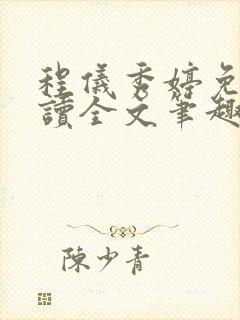 程儀秀婷免
讀全文筆趣
陳少青